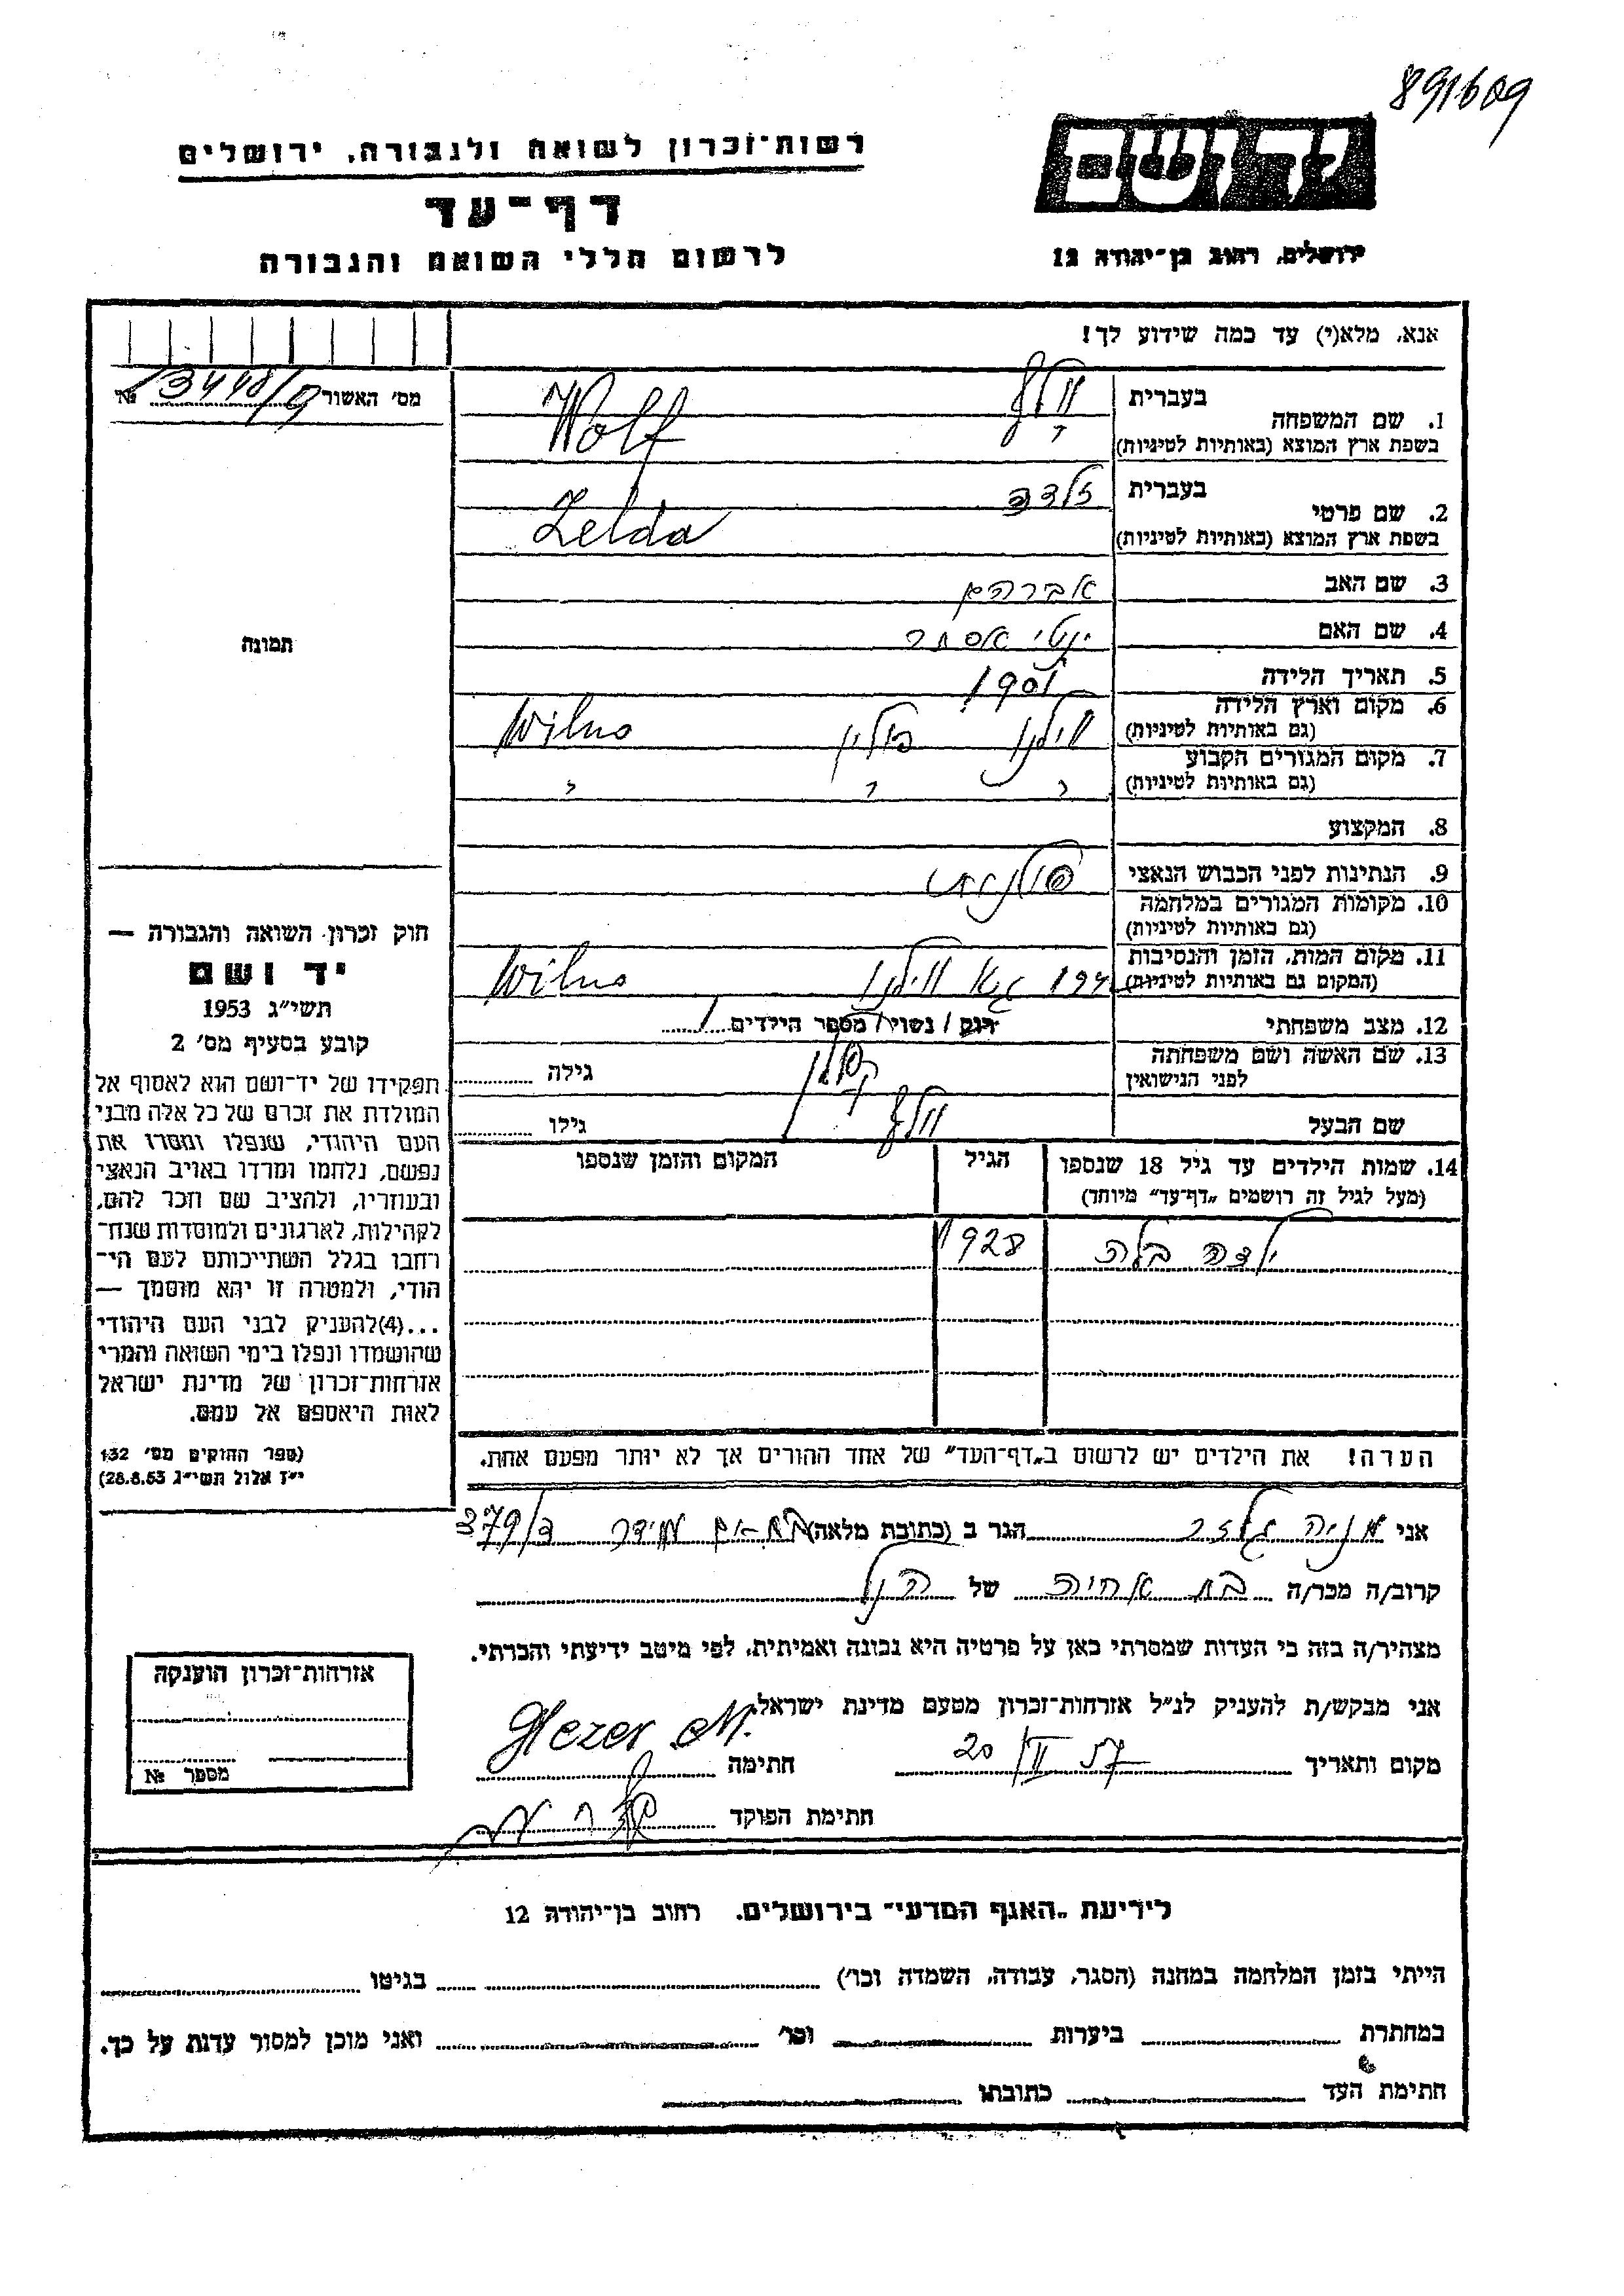 891609
יד ושם
רשות־זכרון לשואה ולגבורה, ירושלים
דף־עד
לרשום חללי השואה והגבורה
ירושלים, רחוב בן־יהודה 12
אנא, מלא(י) עד כמה שידוע לך!
מס׳ האשור № 13448/9
1. שם המשפחה
בעברית וולף
בשפת ארץ המוצא (באותיות לטיניות) Wolf
2. שם פרטי
בעברית זלדה
בשפת ארץ המוצא (באותיות לטיניות) Zelda
3. שם האב אברהם
4. שם האם ינטי אסתר
תמונה
5. תאריך הלידה 1901
6. מקום וארץ הלידה
(גם באותיות לטיניות) ווילנו פולין Wilno
7. מקום המגורים הקבוע
(גם באותיות לטיניות) " " "
8. המקצוע
9. הנתינות לפני הכבוש הנאצי פולנית
10. מקומות המגורים במלחמה
(גם באותיות לטיניות)
11. מקום המות, הזמן והנסיבות
(המקום גם באותיות לטיניות) גטו ווילנו Wilno
12. מצב משפחתי רווק / נשוי / מספר הילדים 1
13. שם האשה ושם משפחתה
לפני הנישואין גילה
שם הבעל וולף גילו
14. שמות הילדים עד גיל 18 שנספו
(מעל לגיל זה רושמים „דף־עד״ מיוחד)
הגיל
המקום והזמן שנספו
ילדה בלה 1928
הערה! את הילדים יש לרשום ב„דף־העד״ של אחד ההורים אך לא יותר מפעם אחת.
חוק זכרון השואה והגבורה —
יד ושם
תשי״ג 1953
קובע בסעיף מס׳ 2
תפקידו של יד־ושם הוא לאסוף אל
המולדת את זכרם של כל אלה מבני
העם היהודי, שנפלו ומסרו את
נפשם, נלחמו ומרדו באויב הנאצי
ובעוזריו, ולהציב שם וזכר להם,
לקהילות, לארגונים ולמוסדות שנח־
רחבו בגלל השתייכותם לעם הי־
הודי, ולמטרה זו יהא מוסמך —
...(4) להעניק לבני העם היהודי
שהושמדו ונפלו בימי השואה והמרי
אזרחות־זכרון של מדינת ישראל
לאות היאספם אל עמם.
(ספר החוקים מס׳ 132
י״ז אלול תשי״ג 28.8.53)
אני מניה גלזר הגר ב (כתובת מלאה) ד/379
קרוב/ה מכר/ה בת אחיה של הנ"ל
מצהיר/ה בזה כי העדות שמסרתי כאן על פרטיה היא נכונה ואמיתית, לפי מיטב ידיעתי והכרתי.
אני מבקש/ת להעניק לנ״ל אזרחות־זכרון מטעם מדינת ישראל.
מקום ותאריך 20/II 57 חתימה Glezer M.
חתימת הפוקד
אזרחות־זכרון הוענקה
מספר №
לידיעת „האגף המדעי״ בירושלים. רחוב בן־יהודה 12
הייתי בזמן המלחמה במחנה (הסגר, עבודה, השמדה וכו׳) בגיטו
במחתרת ביערות וכו׳ ואני מוכן למסור עדות על כך.
חתימת העד כתובתו